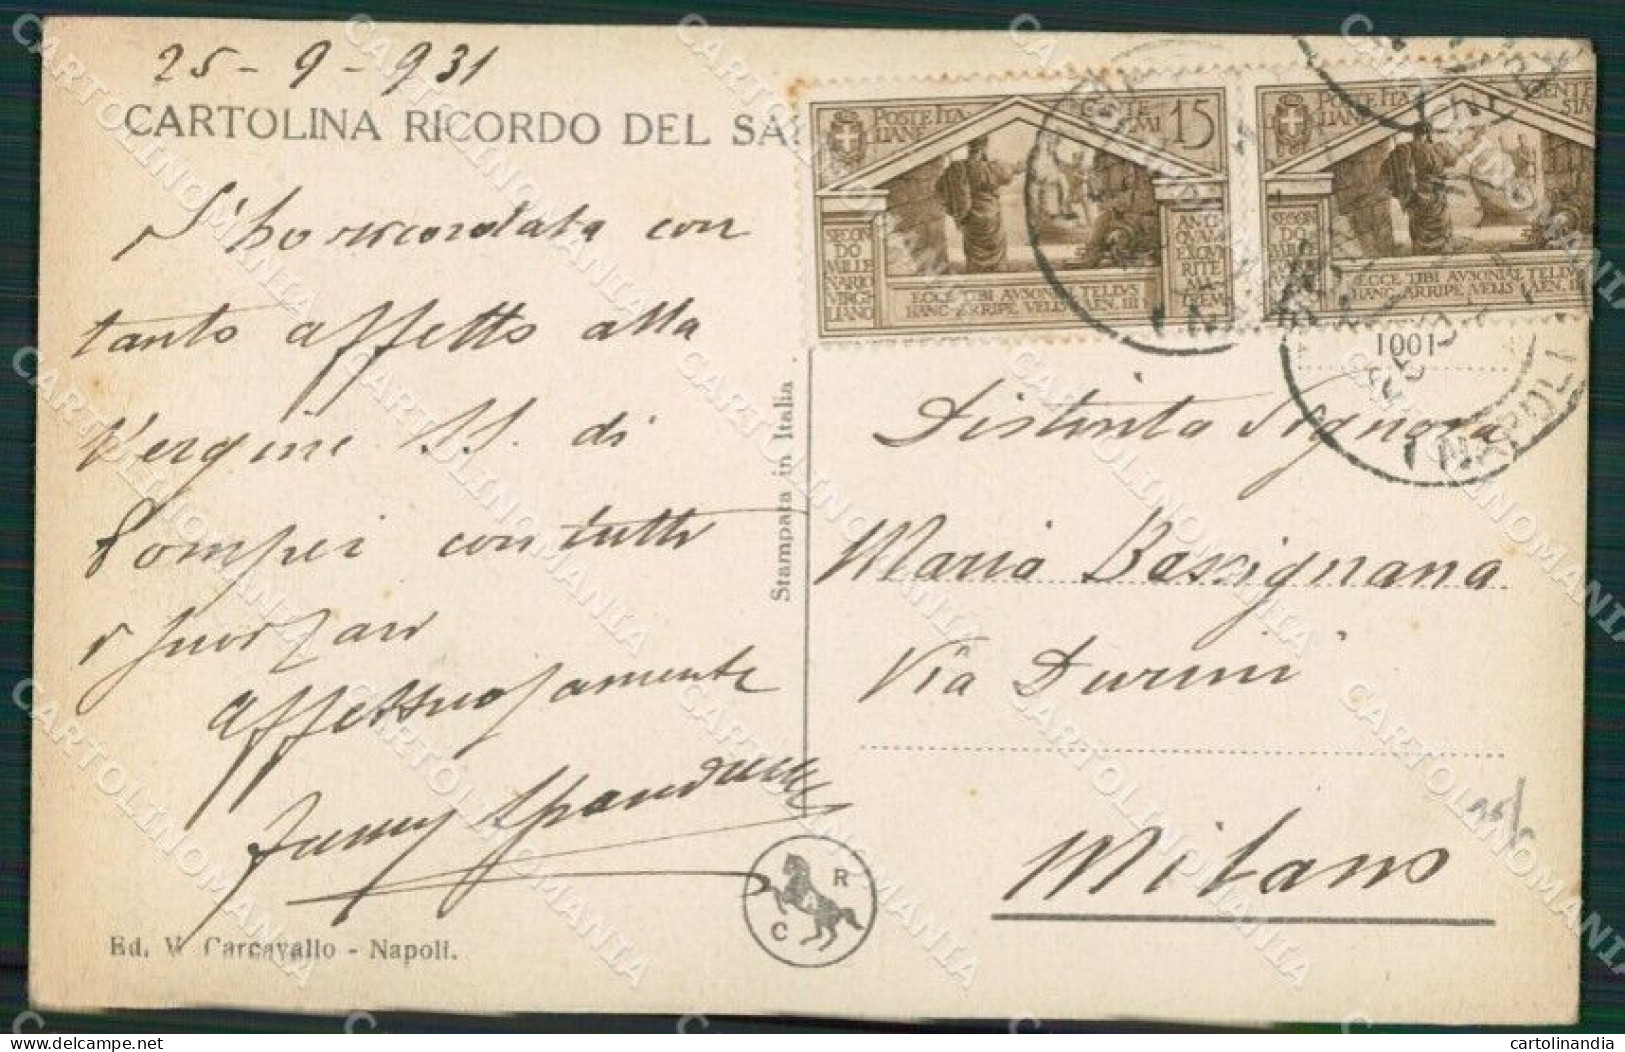 25-9-931
CARTOLINA RICORDO DEL SA
L'ho ricordata con
tanto affetto alla
Vergine SS. di
Pompei con tutti
Affettuosamente
Fanny
Ed. V. Carcavallo - Napoli.
C R
Stampata in Italia
POSTE ITALIANE CENTESIMI 15
SECONDO MILLENARIO VIRGILIANO
ANTIQVAM EXQVIRITE MATREM
ECCE TIBI AVSONIAE TELLVS
HANC ARRIPE VELIS AEN. III
POSTE ITALIANE
ECCE TIBI AVSONIAE TELLVS
HANC ARRIPE VELIS AEN. III
1001
NAPOLI
Distinta Signora
Maria Bassignana
Via Durini
Milano
CARTOLINOMANIA
cartolinandia